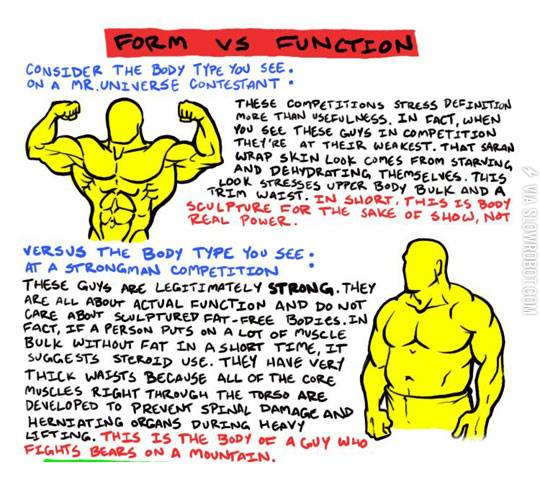 FORM VS FUNCTION
CONSIDER THE BODY TYPE YOU SEE:
ON A MR. UNIVERSE CONTESTANT:
THESE COMPETITIONS STRESS DEFINITION
MORE THAN USEFULNESS. IN FACT, WHEN
YOU SEE THESE GUYS IN COMPETITION
THEY'RE AT THEIR WEAKEST. THAT SARAN
WRAP SKIN LOOK COMES FROM STARVING
AND DEHYDRATING THEMSELVES. THIS
LOOK STRESSES UPPER BODY BULK AND A
TRIM WAIST. IN SHORT, THIS IS BODY
SCULPTURE FOR THE SAKE OF SHOW, NOT
REAL POWER.
VERSUS THE BODY TYPE YOU SEE:
AT A STRONGMAN COMPETITION:
THESE GUYS ARE LEGITIMATELY STRONG. THEY
ARE ALL ABOUT ACTUAL FUNCTION AND DO NOT
CARE ABOUT SCULPTURED FAT-FREE BODIES. IN
FACT, IF A PERSON PUTS ON A LOT OF MUSCLE
BULK WITHOUT FAT IN A SHORT TIME, IT
SUGGESTS STEROID USE. THEY HAVE VERY
THICK WAISTS BECAUSE ALL OF THE CORE
MUSCLES RIGHT THROUGH THE TORSO ARE
DEVELOPED TO PREVENT SPINAL DAMAGE AND
HERNIATING ORGANS DURING HEAVY
LIFTING. THIS IS THE BODY OF A GUY WHO
FIGHTS BEARS ON A MOUNTAIN.
VIA SLOWROBOT.COM